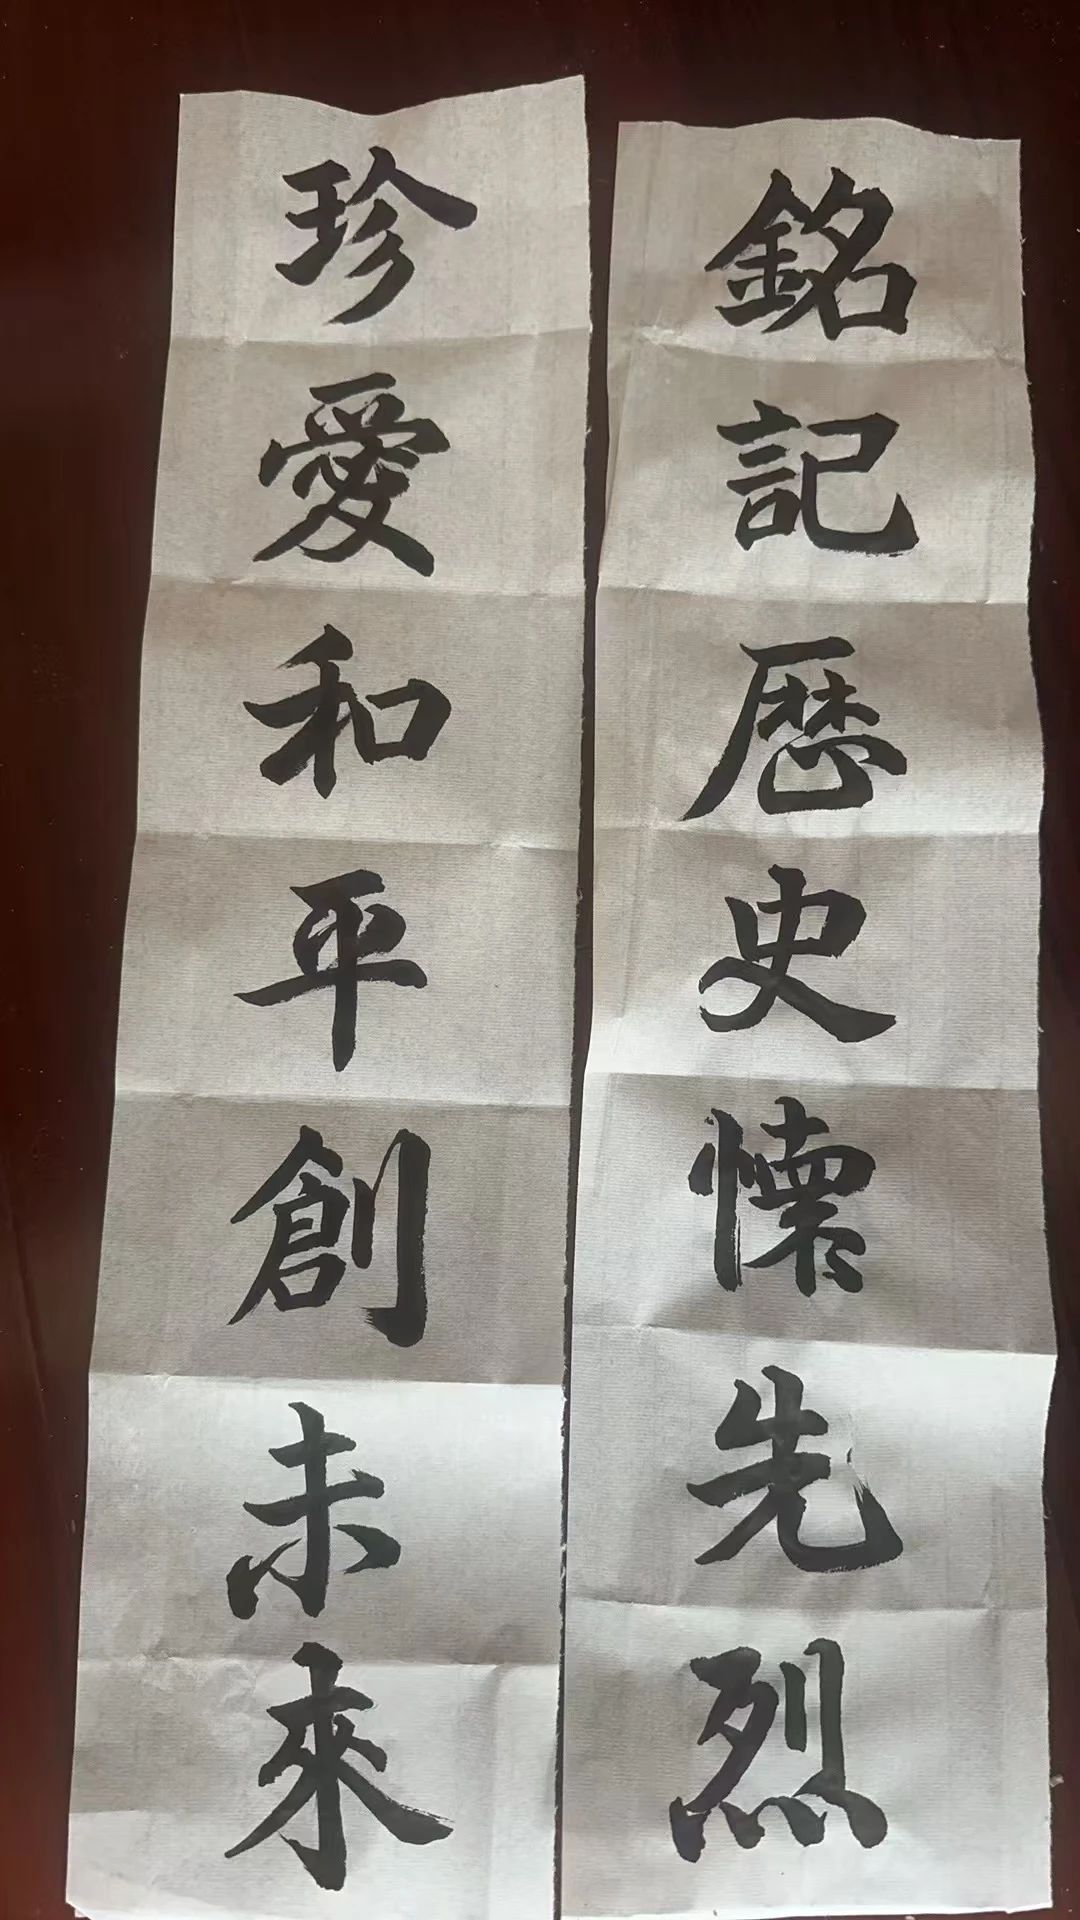 銘記歷史懷先烈
珍愛和平創未來